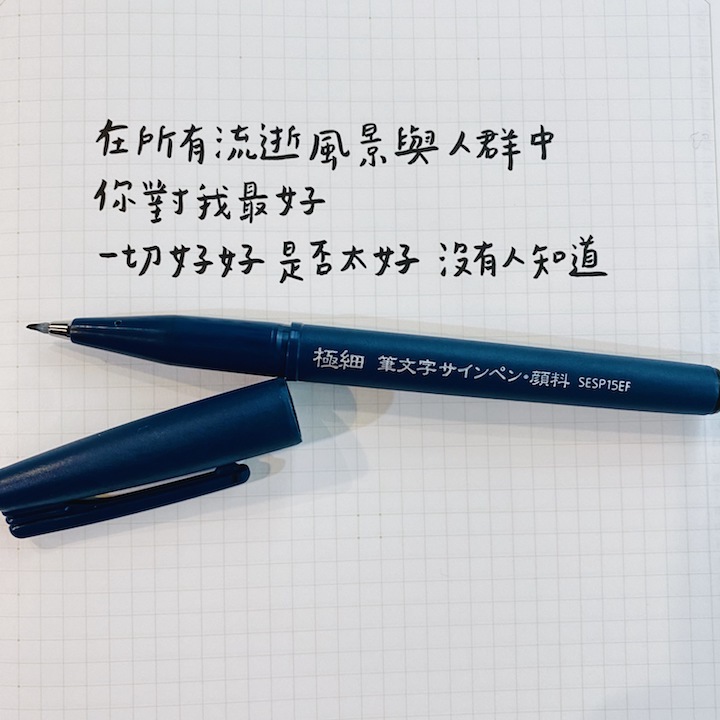 在所有流逝風景與人群中
你對我最好
一切好好 是否太好 沒有人知道
極細 筆文字サインペン・顔料 SESP15EF